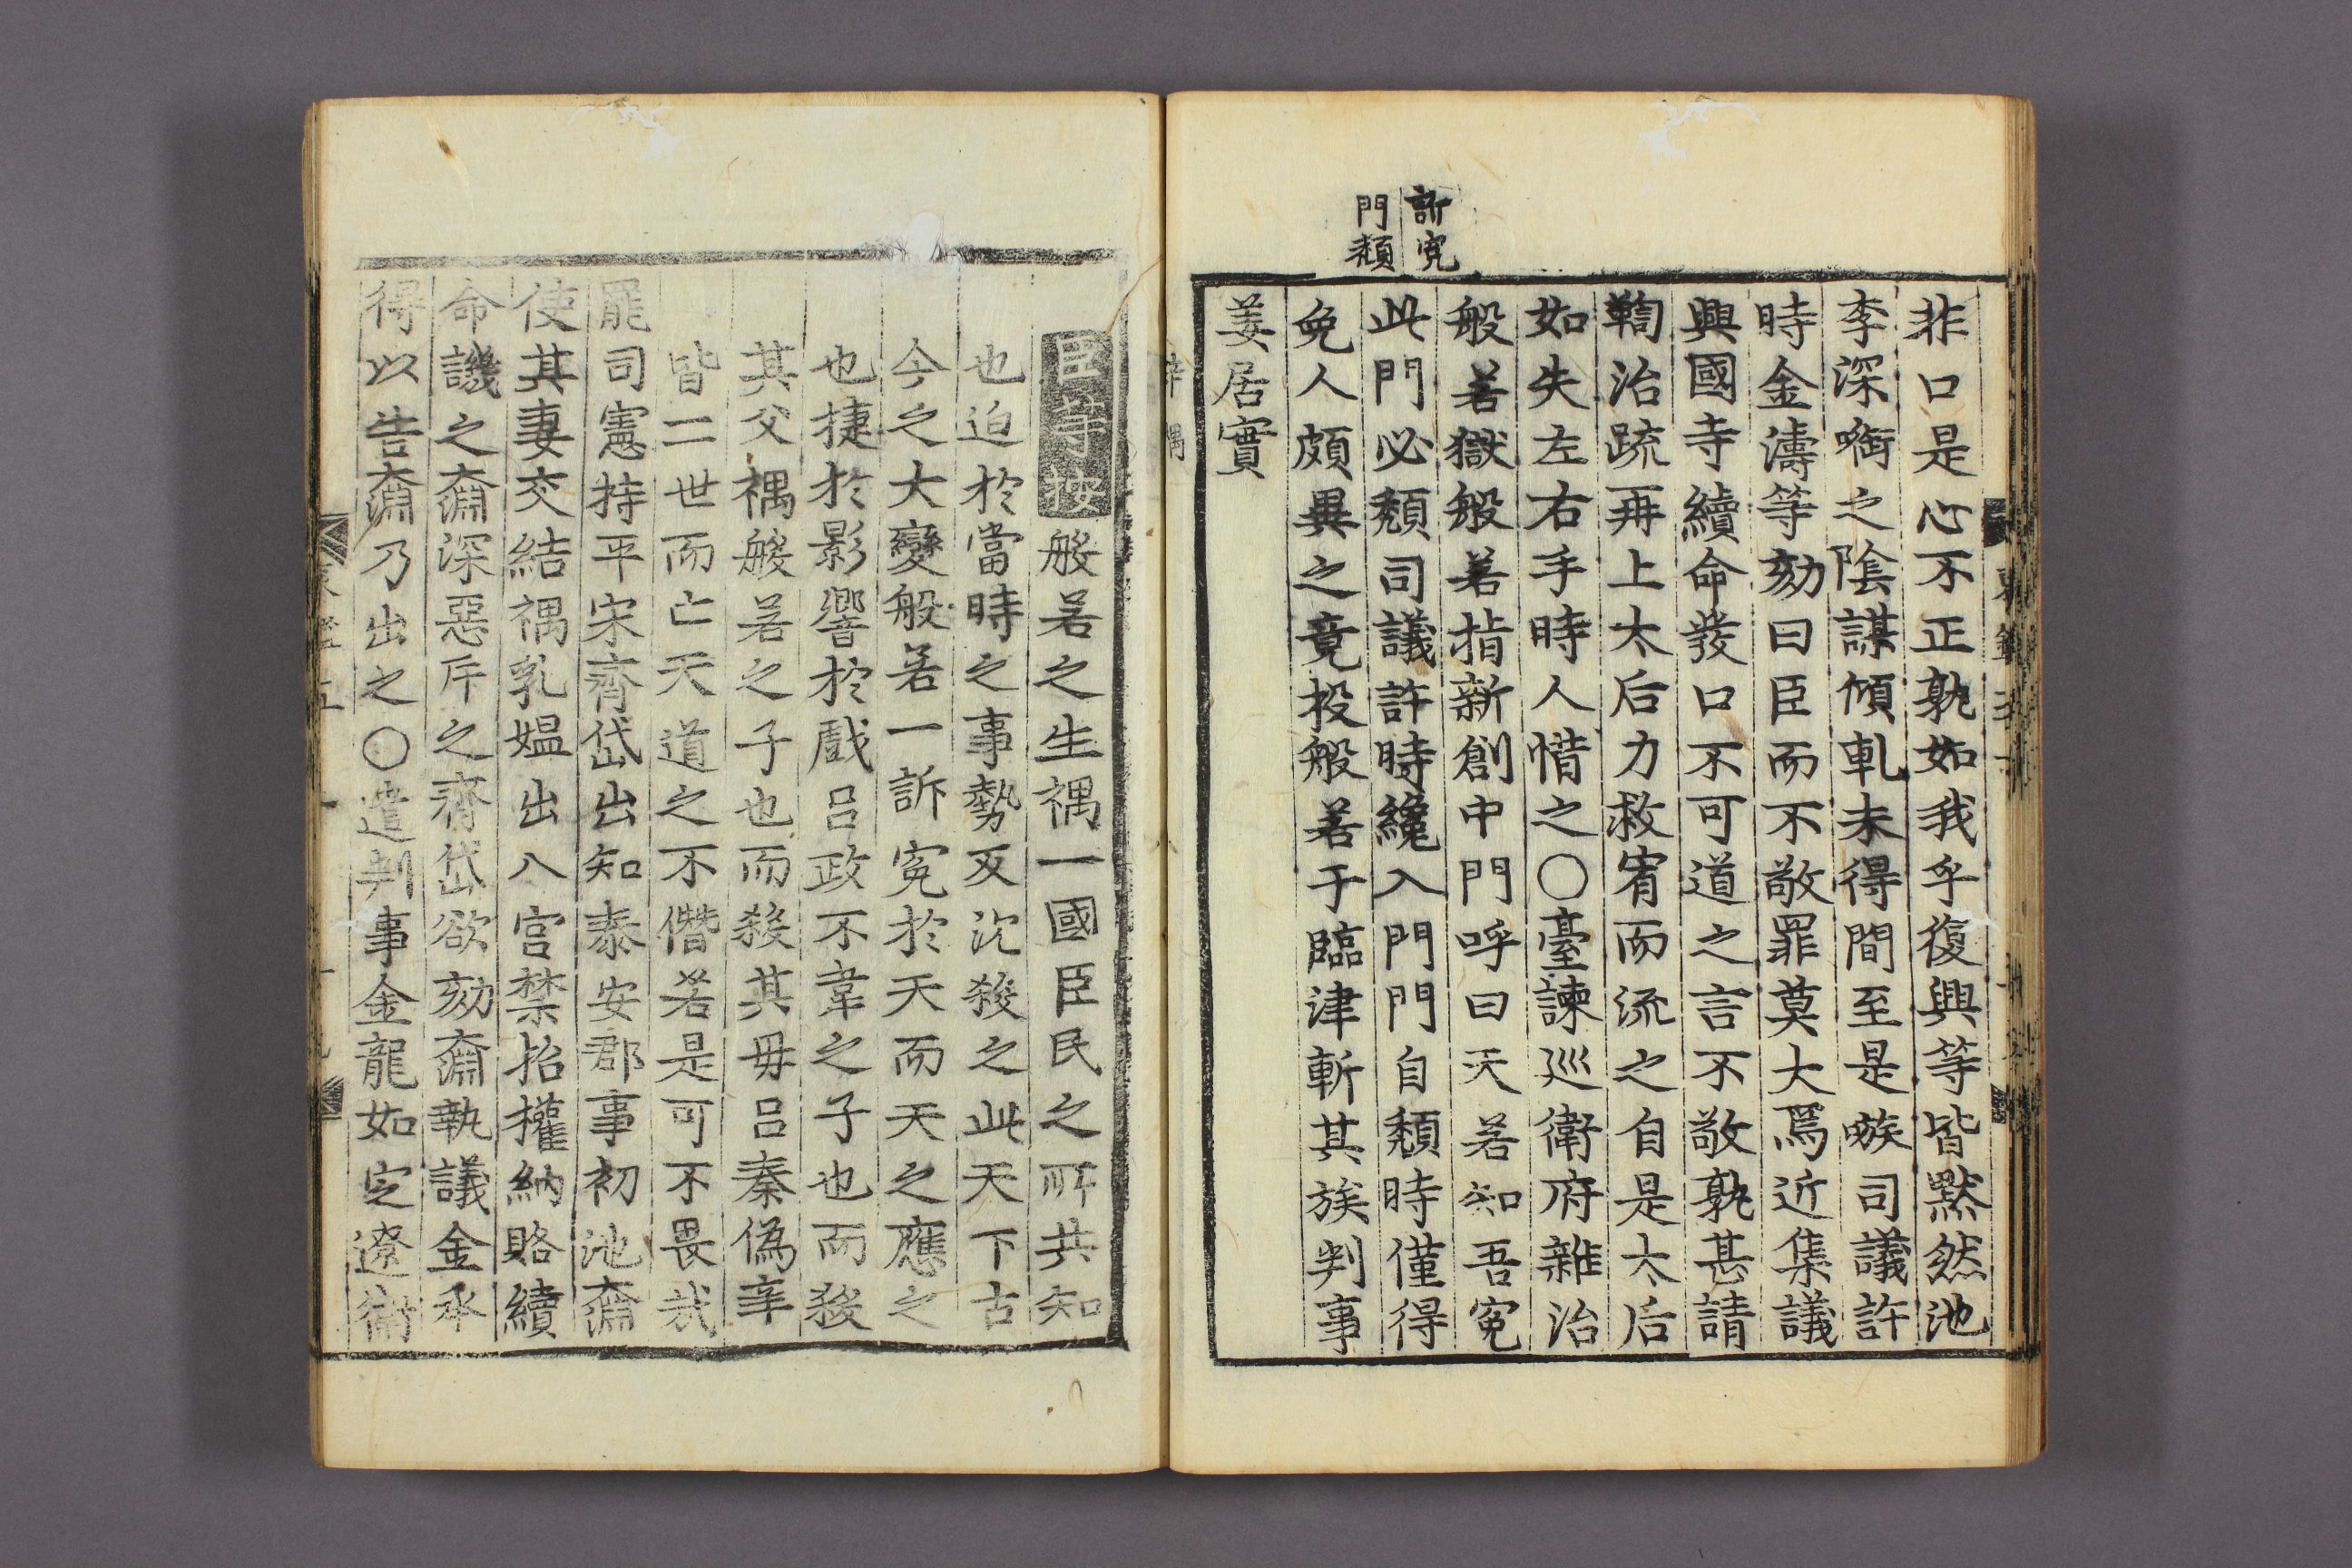 訢寃
門頹
非口是心不正孰如我乎復興等皆默然池
李深啣之陰謀傾軋未得間至是嗾司議許
時金濤等劾曰臣而不敬罪莫大焉近集議
興國寺續命發口不可道之言不敬孰甚請
鞫治䟽再上太后力救宥而流之自是太后
如失左右手時人惜之○臺諫巡衛府雜治
般若獄般若指新創中門呼曰天若知吾寃
此門必頹司議許時纔入門門自頹時僅得
免人頗異之竟投般若于臨津斬其族判事
姜居實
臣等按般若之生禑一國臣民之所共知
也迫於當時之事勢反沈殺之此天下古
今之大變般若一訴寃於天而天之應之
也捷於影響於戲呂政不韋之子也而殺
其父禑般若之子也而殺其母呂秦僞辛
皆二世而亡天道之不僭若是可不畏哉
罷司憲持平宋齊岱出知泰安郡事初池奫
使其妻交結禑乳媼出入宮禁招權納賂續
命譏之奫深惡斥之齊岱欲劾奫執議金承
得以告奫乃出之○遣判事金龍如定遼衛